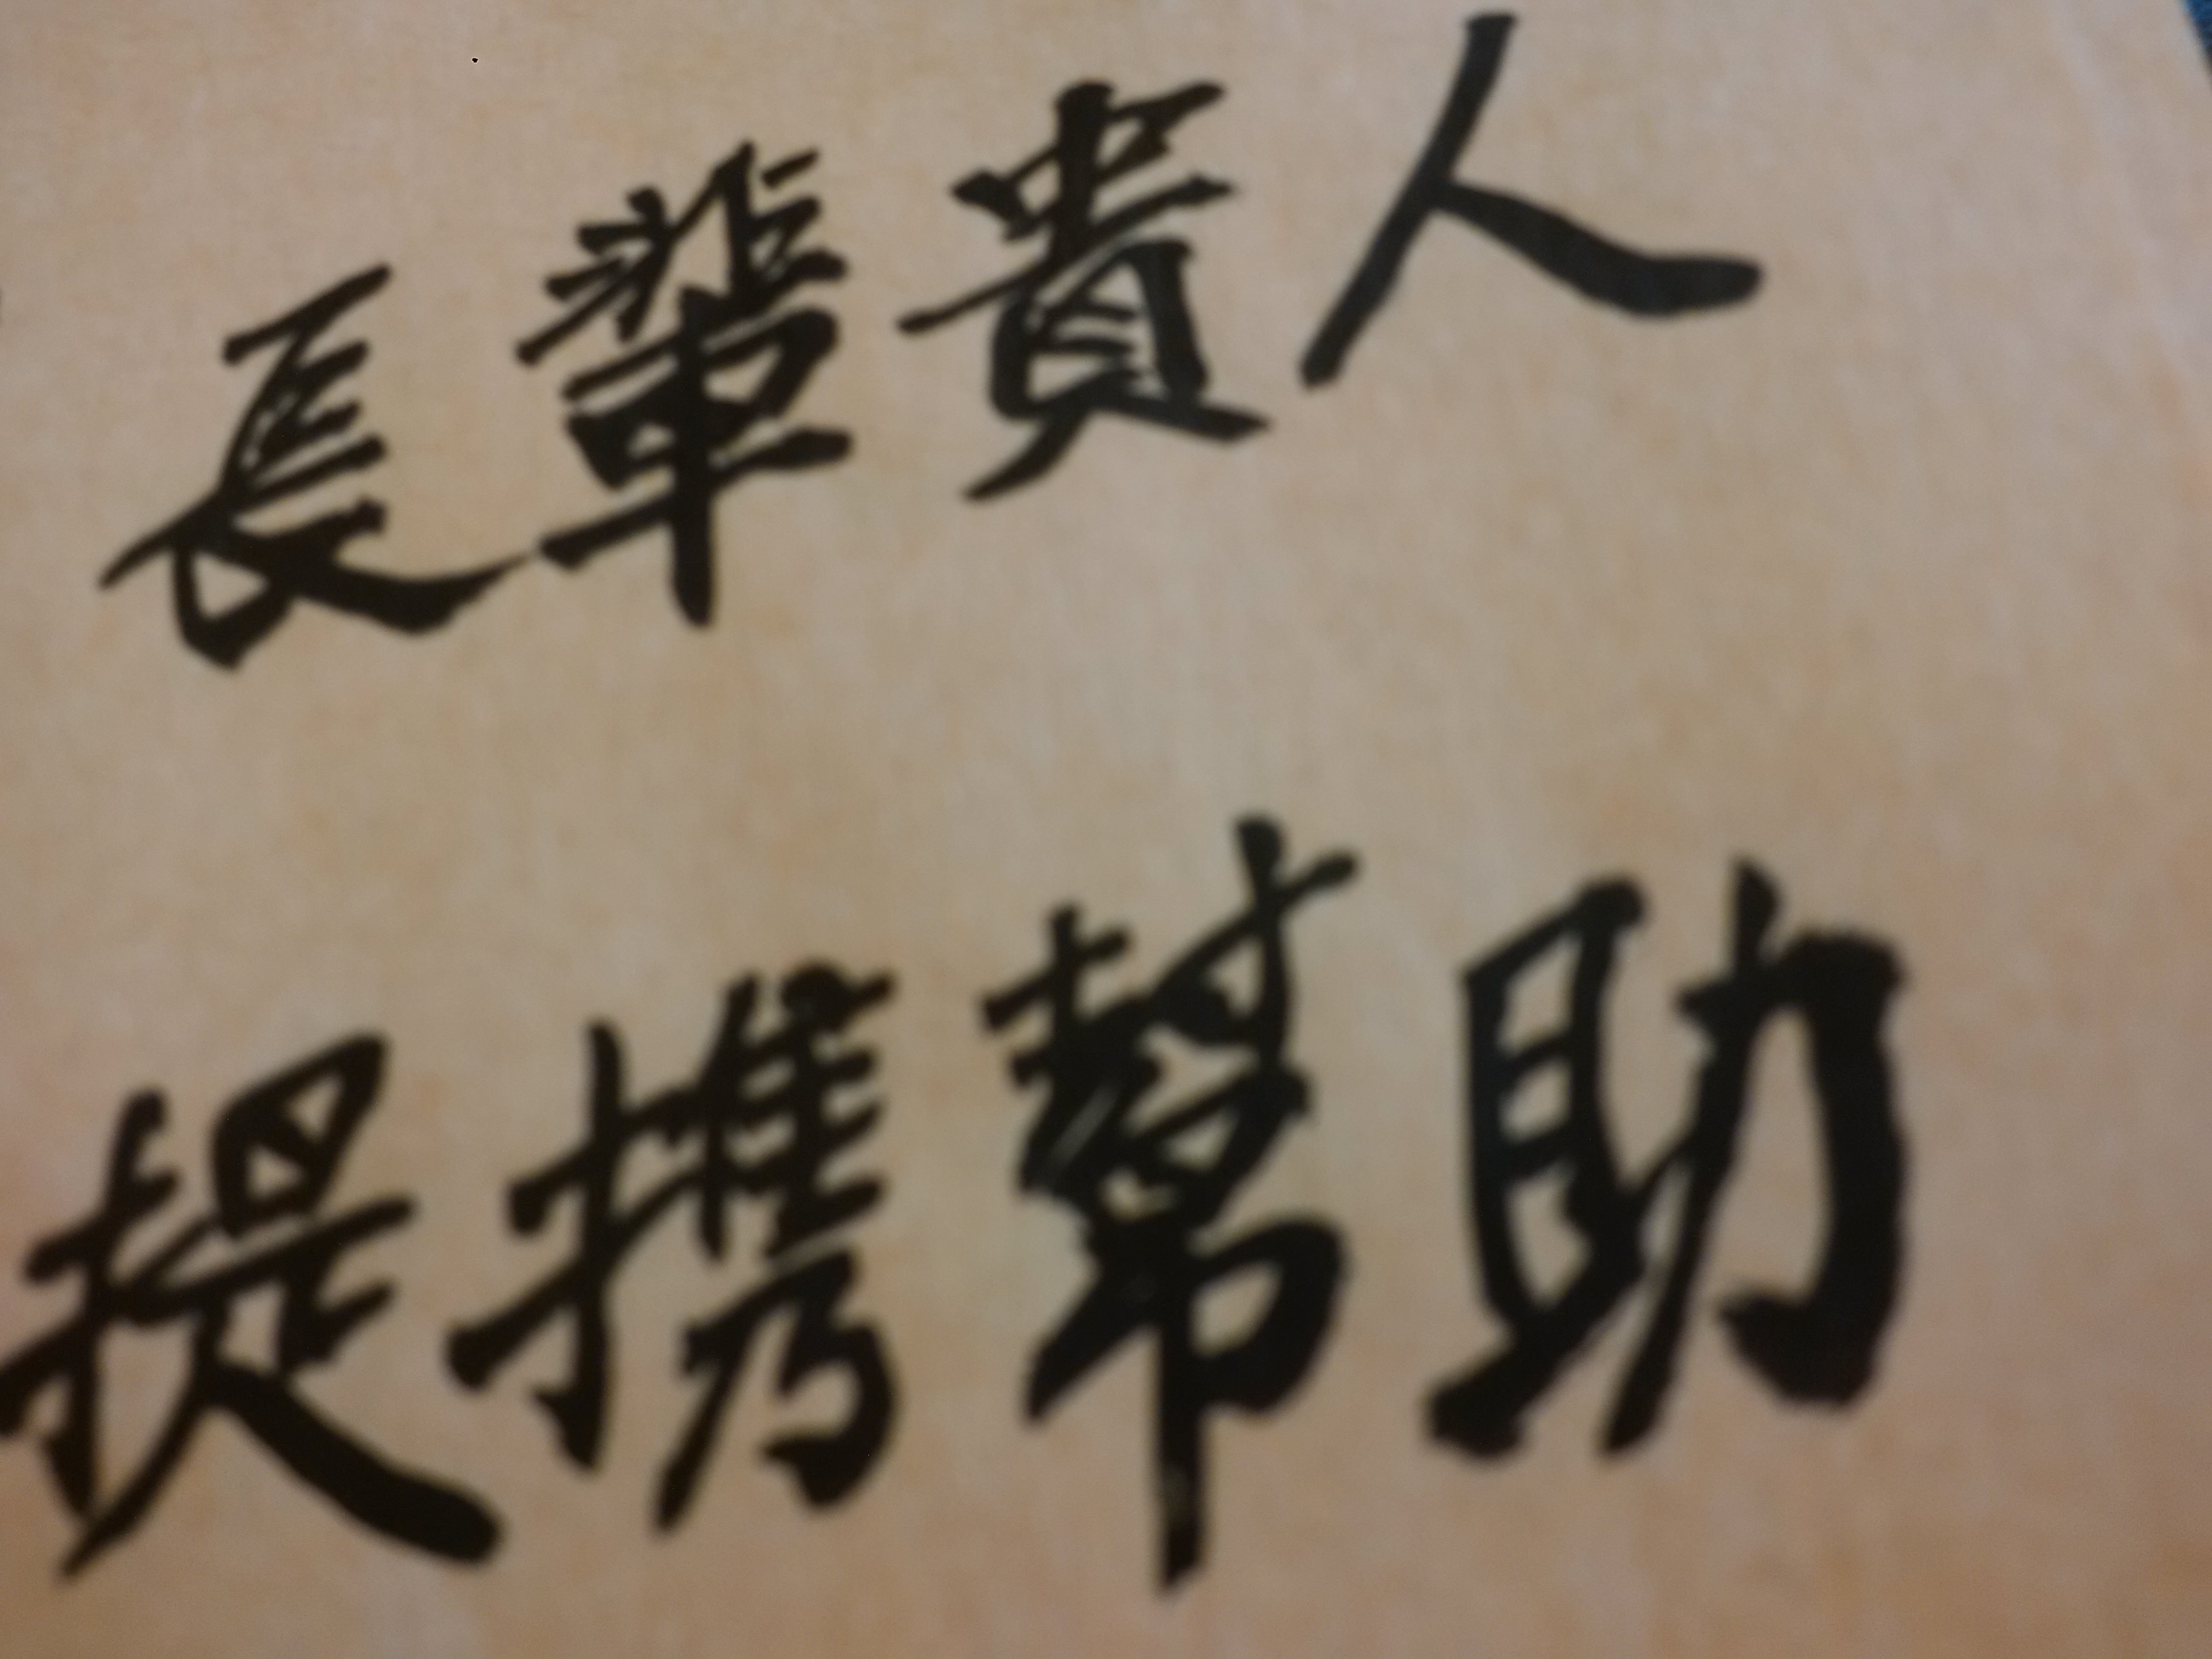 長輩貴人
提携幫助